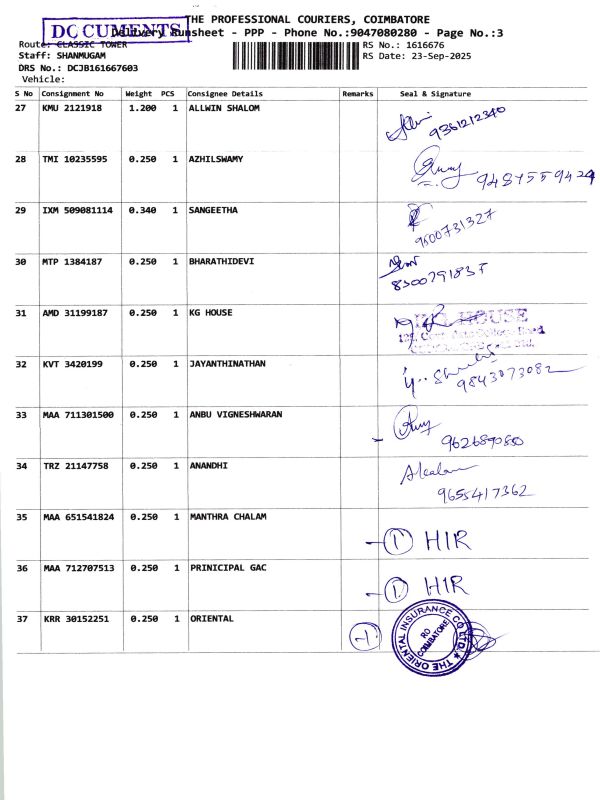 DOCUMENTS
THE PROFESSIONAL COURIERS, COIMBATORE
Delivery Runsheet - PPP - Phone No.:9047080280 - Page No.:3
Route: CLASSIC TOWER RS No.: 1616676
Staff: SHANMUGAM RS Date: 23-Sep-2025
DRS No.: DCJB161667603
Vehicle:
S No Consignment No Weight PCS Consignee Details Remarks Seal & Signature
27 KMU 2121918 1.200 1 ALLWIN SHALOM
9361212340
28 TMI 10235595 0.250 1 AZHILSWAMY
9487559424
29 IXM 509081114 0.340 1 SANGEETHA
9500731327
30 MTP 1384187 0.250 1 BHARATHIDEVI
31 AMD 31199187 0.250 1 KG HOUSE
KG HOUSE
32 KVT 3420199 0.250 1 JAYANTHINATHAN
9843073082
33 MAA 711301500 0.250 1 ANBU VIGNESHWARAN
34 TRZ 21147758 0.250 1 ANANDHI
9655417362
35 MAA 651541824 0.250 1 MANTHRA CHALAM
1 HIR
36 MAA 712707513 0.250 1 PRINICIPAL GAC
1 HIR
37 KRR 30152251 0.250 1 ORIENTAL
1
THE ORIENTAL INSURANCE CO. LTD.
RO
COIMBATORE